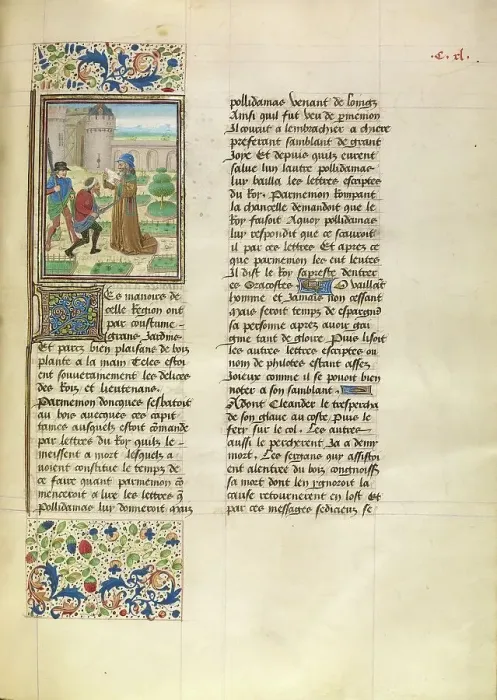 .C. xl.
Es manoirs de
celle Region ont
par coustume
grans Jardins
Et parcz bien plaisans de bois
plante a la main Teles estoi
ent souverainement les delices
des Rois et lieutenans.
Parmenon doncques sesbatoit
au bois avecques ces capi
taines ausquels estoit comande
par lettres du Roy quilz le
meissent a mort lesquels a
voient constitue le temps de
ce faire quant parmenion
menceroit a lire les lettres q̄
Pollidamas luy donneroit mais
pollidamas venant de loings
Ainsi quil fut veu de p̄menion
Il courut a lembrachier a chiere
preferant samblant de grant
Joye Et depuis quilz eurent
salue lun lautre pollidamas
luy bailla les lettres escriptes
du Roy. Parmenion Rompant
la chancelle demandoit que le
Roy faisoit Aquoy pollidamas
luy respondit que ce scauroit
il par ces lettres Et apres ce
que parmenion les eut leutes
Il dist le Roy sapreste dentrer
es vaillāt
homme et Jamais non cessant
mais seroit temps despargnier
sa personne apres avoir gai
gnie tant de gloire Puis lisoit
les autres lettres escriptes ou
nom de philotes estant assez
Joieux comme il se pouoit bien
noter a son samblant.
Adont Cleander le trespercha
de son glaive au coste Puis le
fery sur le col. Les autres
aussi le percherent Ja a demy
mort. Les sergans qui assistoi
ent alentree du bois congnoiss
sa mort dont len ygnoroit la
cause retournerent en lost Et
par ces messages sedicieux se